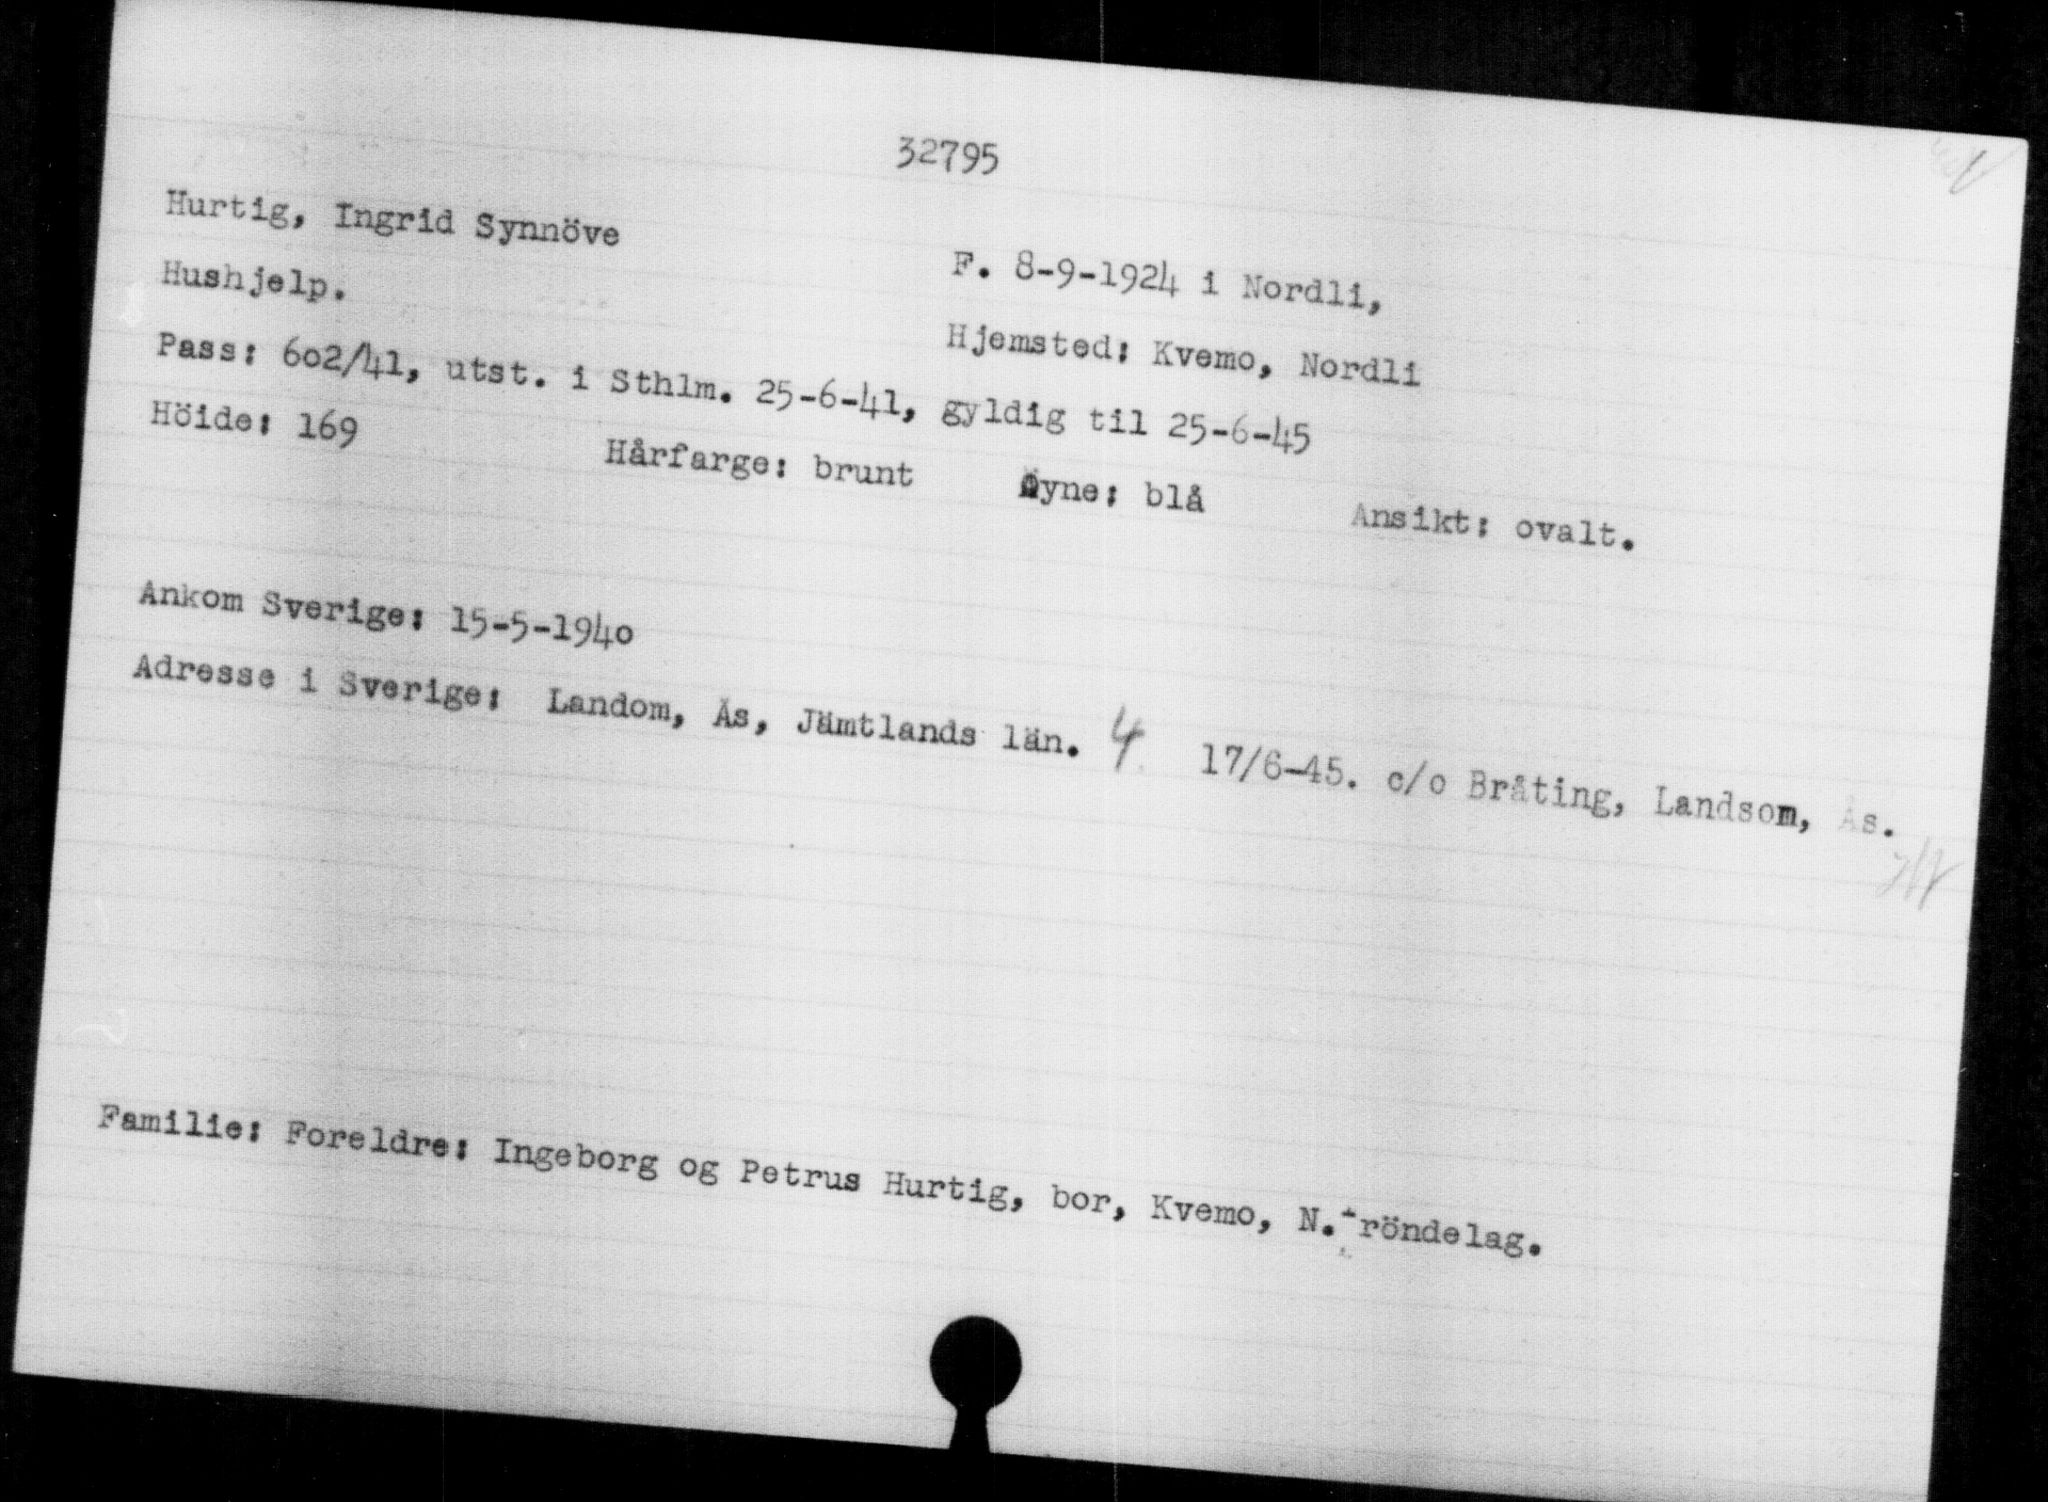 32795
Hurtig, Ingrid Synnöve
F. 8-9-1924 i Nordli,
Hushjelp.
Hjemsted: Kvemo, Nordli
Pass: 602/41, utst. i Sthlm. 25-6-41, gyldig til 25-6-45
Höide: 169 Hårfarge: brunt Öyne: blå Ansikt: ovalt.
Ankom Sverige: 15-5-1940
Adresse i Sverige: Landom, Ås, Jämtlands län. 4 17/6-45. c/o Bråting, Landsom, Ås.
Familie: Foreldre: Ingeborg og Petrus Hurtig, bor, Kvemo, N. röndelag.